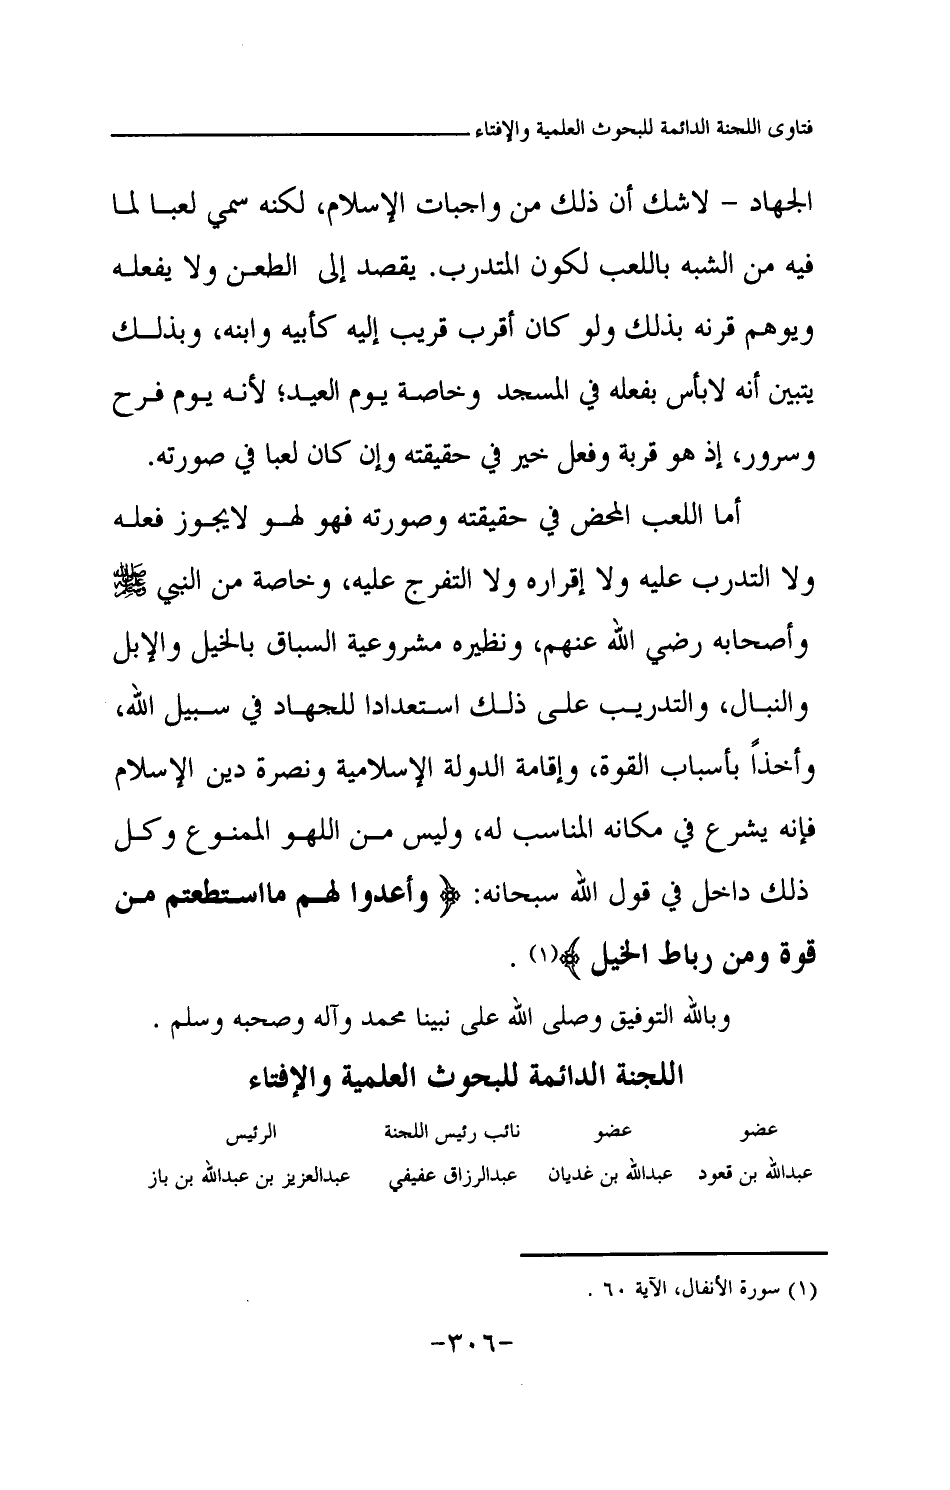 فتاوى اللجنة الدائمة للبحوث العلمية والإفتاء
الجهاد – لاشك أن ذلك من واجبات الإسلام، لكنه سمي لعبا لما
فيه من الشبه باللعب لكون المتدرب. يقصد إلى الطعن ولا يفعله
ويوهم قرنه بذلك ولو كان أقرب قريب إليه كأبيه وابنه، وبذلك
يتبين أنه لابأس بفعله في المسجد وخاصة يوم العيد؛ لأنه يوم فرح
وسرور، إذ هو قربة وفعل خير في حقيقته وإن كان لعبا في صورته.
أما اللعب المحض في حقيقته وصورته فهو لهو لايجوز فعله
ولا التدرب عليه ولا إقراره ولا التفرج عليه، وخاصة من النبي ﷺ
وأصحابه رضي الله عنهم، ونظيره مشروعية السباق بالخيل والإبل
والنبال، والتدريب على ذلك استعدادا للجهاد في سبيل الله،
وأخذاً بأسباب القوة، وإقامة الدولة الإسلامية ونصرة دين الإسلام
فإنه يشرع في مكانه المناسب له، وليس من اللهو الممنوع وكل
ذلك داخل في قول الله سبحانه: ﴿ وأعدوا لهم مااستطعتم من
قوة ومن رباط الخيل ﴾(١) .
وبالله التوفيق وصلى الله على نبينا محمد وآله وصحبه وسلم .
اللجنة الدائمة للبحوث العلمية والإفتاء
عضو عضو نائب رئيس اللجنة الرئيس
عبدالله بن قعود عبدالله بن غديان عبدالرزاق عفيفي عبدالعزيز بن عبدالله بن باز
(١) سورة الأنفال، الآية ٦٠ .
-٣٠٦-